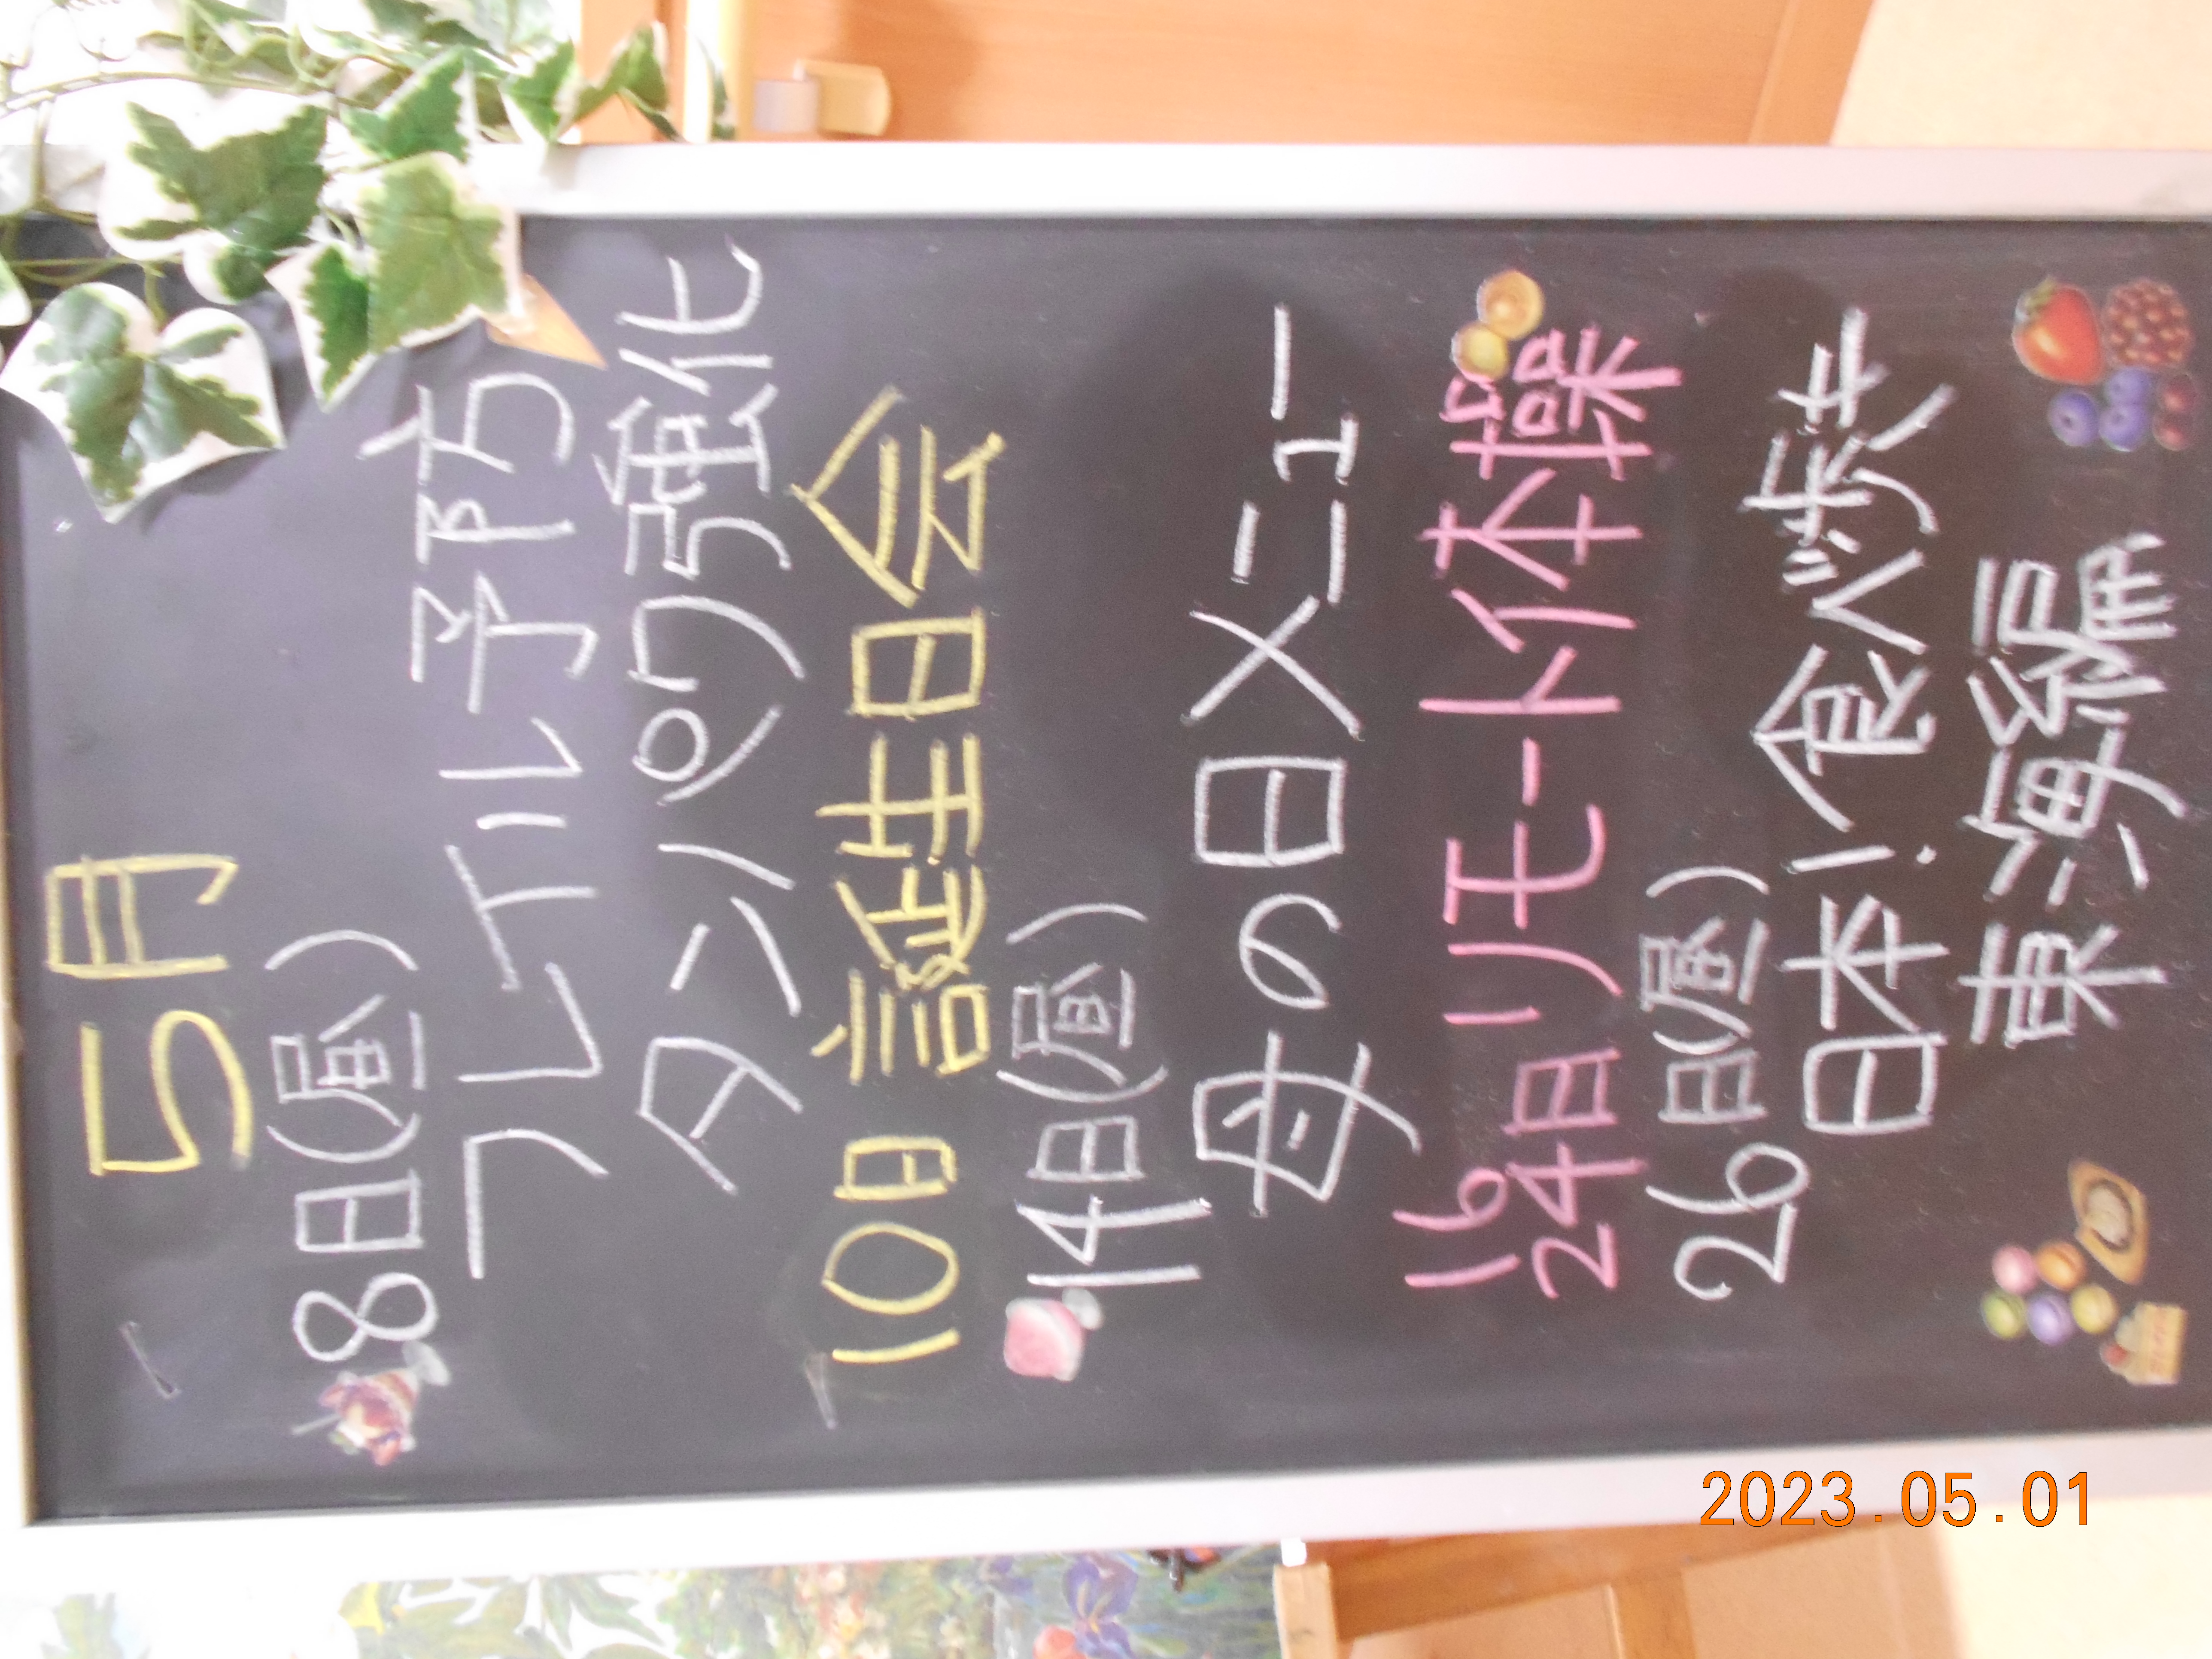 5月
8日(昼)
フレイル予防
タンパク強化
10日 誕生日会
14日(昼)
母の日メニュー
16
24日 リモート体操
26日(昼)
日本!食べ歩き
東海編
2023.05.01